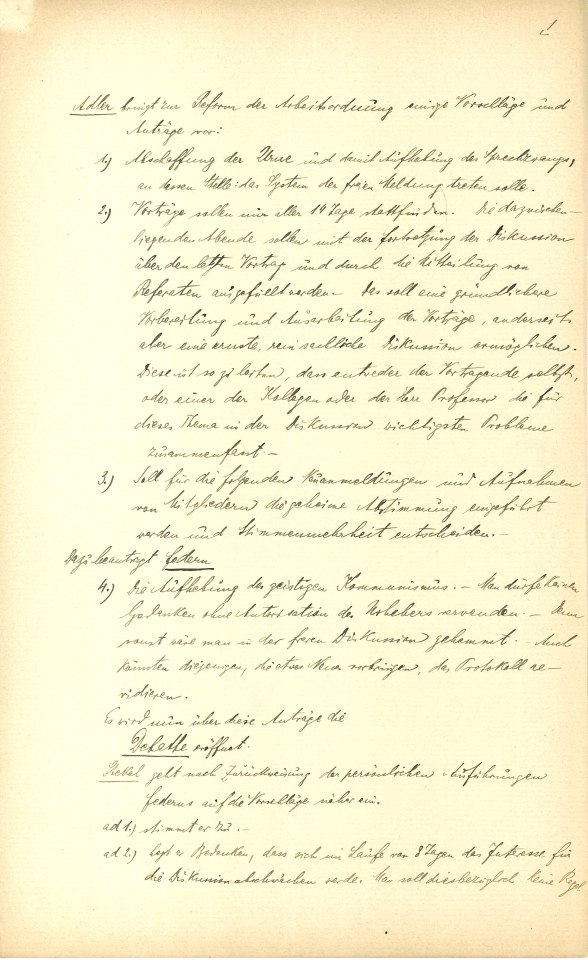 1
Adler bringt zur Reform der Arbeitsordnung einige Vorschläge und
Anträge vor:
1.) Abschaffung der Urne und damit Aufhebung des Sprechzwangs,
an dessen Stelle: das System der freien Meldung treten solle.
2.) Vorträge sollen nur aller 14 Tage stattfinden. Die dazwischen-
liegenden Abende sollen mit der Fortsetzung der Diskussion
über den letzten Vortrag und durch die Mitteilung von
Referaten ausgefüllt werden – das soll eine gründlichere
Vorbereitung und Ausarbeitung der Vorträge, anderseits
aber eine ernste, rein sachliche Diskussion ermöglichen.
Diese ist so zu leiten, dass entweder der Vortragende selbst,
oder einer der Kollegen oder der Herr Professor die für
dieses Thema in der Diskussion wichtigsten Probleme
zusammenfasst –
3.) Soll für die folgenden Neuanmeldungen und Aufnahmen
von Mitgliedern die geheime Abstimmung eingeführt
werden und Stimmenmehrheit entscheiden. –
Dazu beantragt Federn
4.) Die Aufhebung des geistigen Kommunismus. – Man dürfe keinen
Gedanken ohne Autorisation des Urhebers verwenden. – Denn
sonst wäre man in der freien Diskussion gehemmt. – Auch
könnten diejenigen, die etwas Neues vorbringen, das Protokoll re-
vidieren.
Es wird nun über diese Anträge die
Debatte eröffnet.
Stekel geht nach Zurückweisung der persönlichen Ausführungen
Federns auf die Vorschläge näher ein.
ad 1.) stimmt er zu. –
ad 2.) hegt er Bedenken, dass sich im Laufe von 8 Tagen das Interesse für
die Diskussion abschwächen werde. Man soll diesbezüglich keine Regel